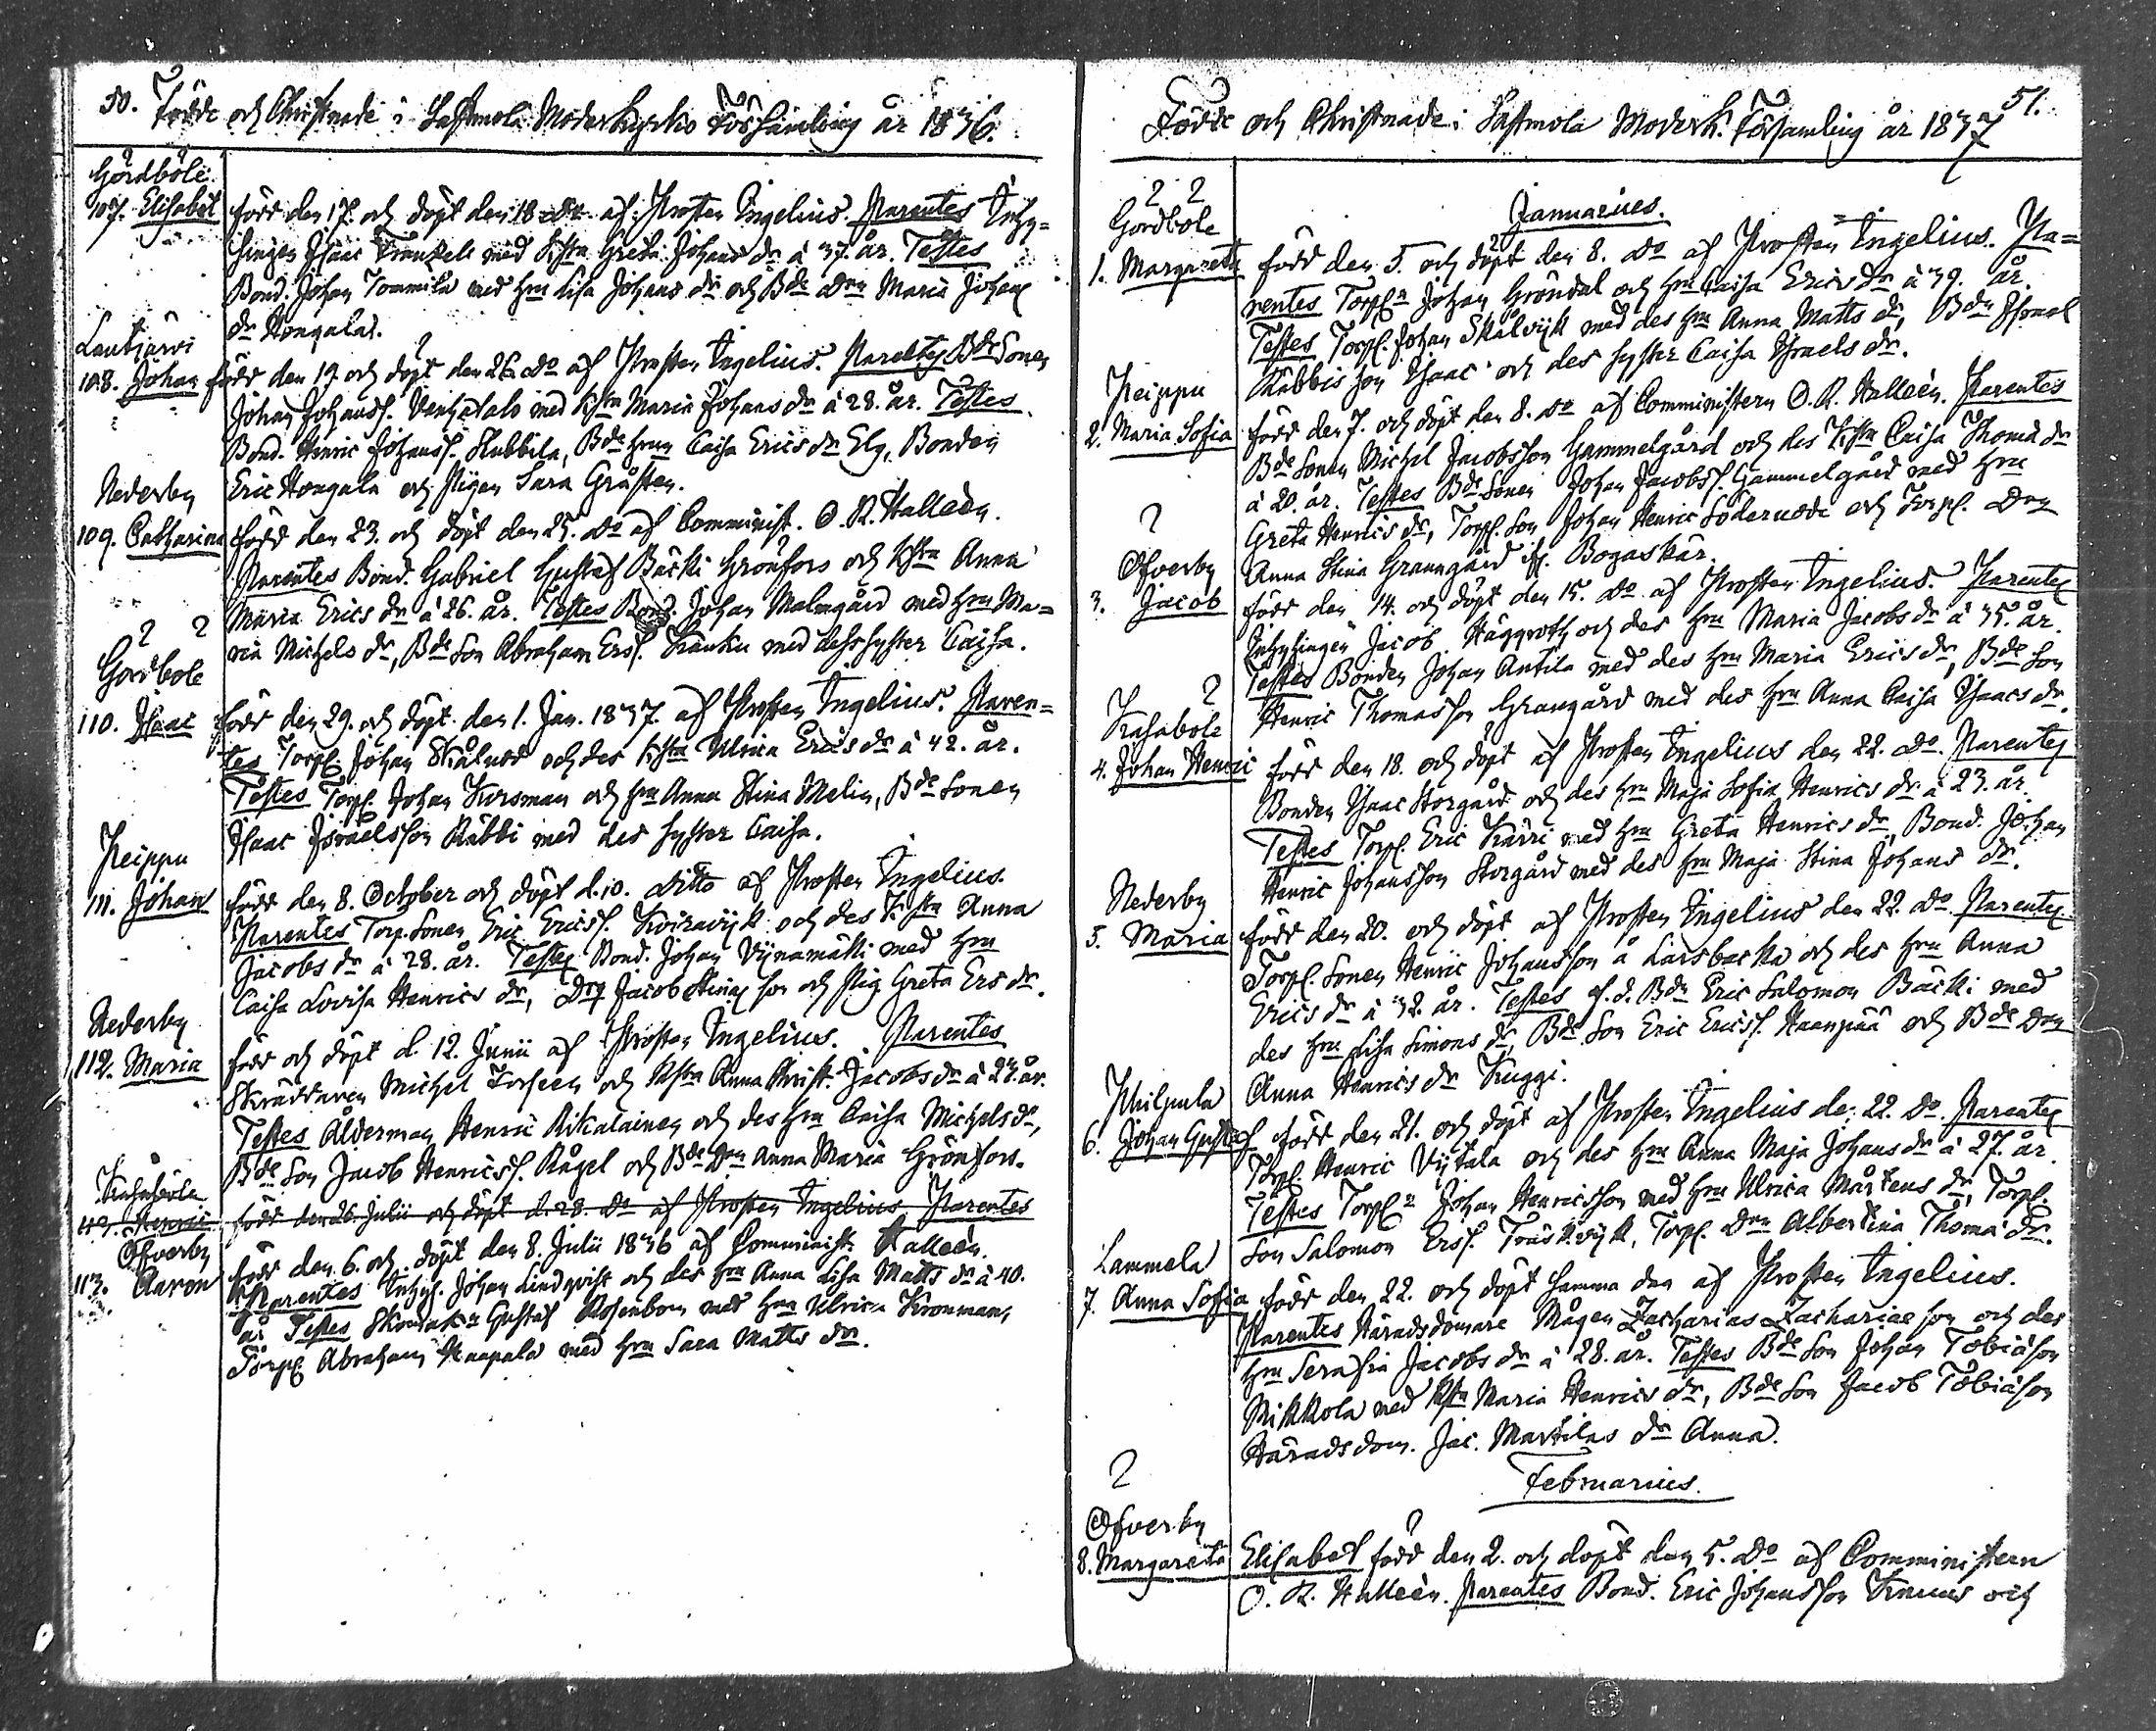 50. Födde och Christnade i Sastmola Moderkyrkio Församling år 1836.
Gördböle
107. Elisabet född den 17. och döpt den 18 do af Prosten Ingelius. Parentes Inhy=
singen Isaac med hstr Greta Johans dr à 37. år. Testes
Bond. Johan Tommila med hru Lisa Johans dr och Bde drn Maria Johans
dr Hongala.
Lautjärvi
108. Johan född den 19 och döpt den 26 do af Prosten Ingelius. Parentes Bde Sonen
Johan Johanss. med hstr Maria Johans dr à 28. år. Testes
Bond. Henric Johanss. Stubbila, Bde hrun Caisa Erics dr Elg, Bonden
Eric Hongala och Pigan Sara Gråsten.
Nederby
109. Catharina född den 23. och döpt den 25. do af Comminist. O. R. Halleèn.
Parentes Bond. Gabriel Gustaf Bäcki Grönfors och hstr Anna
Maria Erics dr à 26. år. Testes Bond. Johan Malmgård med hru Ma=
ria Michels dr, Bde Son Abraham Erss. Kranku med dess syster Caisa.
Gordbole
110. Isaac född den 29. och döpt den 1. Jan. 1837. af Prosten Ingelius. Paren=
tes Torp. Johan Skålnor och des hstr Ulrica Erics dr à 42. år.
Testes Torp. Johan Korsman och hru Anna Stina Melin, Bde Sonen
Isaac Israelsson Räbbi med des syster Caisa.
Peippu
111. Johan född den 8. October och döpt d. 10. ditto af Prosten Ingelius.
Parentes Torp. Sonen Eric Ericss. Koiravijk och des hstr Anna
Jacobs dr à 28. år. Testes Bond. Johan Vijnamäki med hru
Caisa Lovisa Henrics dr, Drg Jacob Stinas son och Pig. Greta Ers dr.
Nederby
112. Maria född och döpt d. 12. Junii af Prosten Ingelius. Parentes
Skräddaren Michel Forseen och hstr Anna Christ. Jacobs dr à 27. år.
Testes Ålderman Henric Rikalainen och des hru Caisa Michels dr,
Bde Son Jacob Henricss. Rågel och Bde Drn Anna Maria Grönfors.
Kasaböle
Henric född den 26. Julii och döpt d. 28. do af Prosten Ingelius Parentes
Öfverby
113. Aaron född den 6. och döpt den 8. Julii 1836 af Comminist. Halleèn.
Parentes Inhys. Johan Lindqvist och des hru Anna Lisa Matts dr à 40.
år Testes Gustaf Rosenbom med hru Ulrica Kronman,
Torp. Abraham Haapala med hru Sara Matts dr.
Födde och Christnade i Sastmola Moderk. Församling år 1837 51.
Januarius.
Gordbole
1. Margareta född den 5. och döpt den 8. do af Prosten Ingelius. Pa=
rentes Torp. Johan Gröndal och hru Caisa Erics dr à 39. år.
Testes Torp. Johan Skålvijk med des hru Anna Matts dr, Bdn Israel
Räbbis son Isaac och des syster Caisa Israels dr.
Peippu
2. Maria Sofia född den 7. och döpt den 8. do af Comministern O. R. Halleèn. Parentes
Bde Sonen Michel Jacobsson Gammelgård och des hstr Caisa Thomæ dr
à 20. år. Testes Bde Sonen Johan Jacobss. Gammelgård med hru
Greta Henrics dr, Torp. Son Johan Henric och Torp. Drn
Anna Stina Granngård fr. Bogaskär.
Öfverby
3. Jacob född den 14. och döpt den 15. do af Prosten Ingelius. Parentes
Inhysingen Jacob Häggroth och des hru Maria Jacobs dr à 35. år.
Testes Bonden Johan Antila med des hru Maria Erics dr, Bde Son
Henric Thomasson Grangård med des hru Anna Caisa Isaacs dr.
Kasabole
4. Johan Henric född den 18. och döpt af Prosten Ingelius den 22. do. Parentes
Bonden Isaac Storgård och des hru Maja Sofia Henrics dr à 23. år.
Testes Torp. Eric Kärri med hru Greta Henrics dr, Bond. Johan
Henric Johansson Storgård med des hru Maja Stina Johans dr.
Nederby
5. Maria född den 20. och döpt af Prosten Ingelius den 22. do. Parentes
Torp. Sonen Henric Johansson å Larsbacka och des hru Anna
Erics dr à 32. år. Testes f.d. Bdn Eric Salomon Bäcki med
des hru Lisa Simons dr, Bde Son Eric Ericss. Haanpää och Bde Drn
Anna Henrics dr Kuggi.
Philpula
6. Johan Gustaf född den 21. och döpt af Prosten Ingelius den 22. do. Parentes
Torp. Henric Vijtala och des hru Anna Maja Johans dr à 27. år.
Testes Torp. Johan Henricsson med hru Ulrica Mårtens dr, Torp.
Son Salomon Erss. Träskvijk, Torp. Drn Albertina Thomæ dr.
Lammela
7. Anna Sofia född den 22. och döpt samma dag af Prosten Ingelius.
Parentes Häradsdomare Mågen Zacharias Zachariae son och des
hru Serafia Jacobs dr à 28. år. Testes Bde Son Johan Tobiæson
Mikkola med hstr Maria Henrics dr, Bde Son Jacob Tobiæson
Häradsdom. Jac. Martilas dr Anna.
Februarius.
Öfverby
8. Margareta Elisabet född den 2. och döpt den 5. do af Comministern
O. R. Halleèn. Parentes Bond. Eric Johansson Knuus och